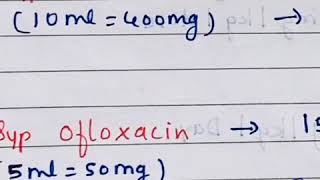 (10ml = 400mg) →
Syp Ofloxacin → 15
(5ml = 50mg)